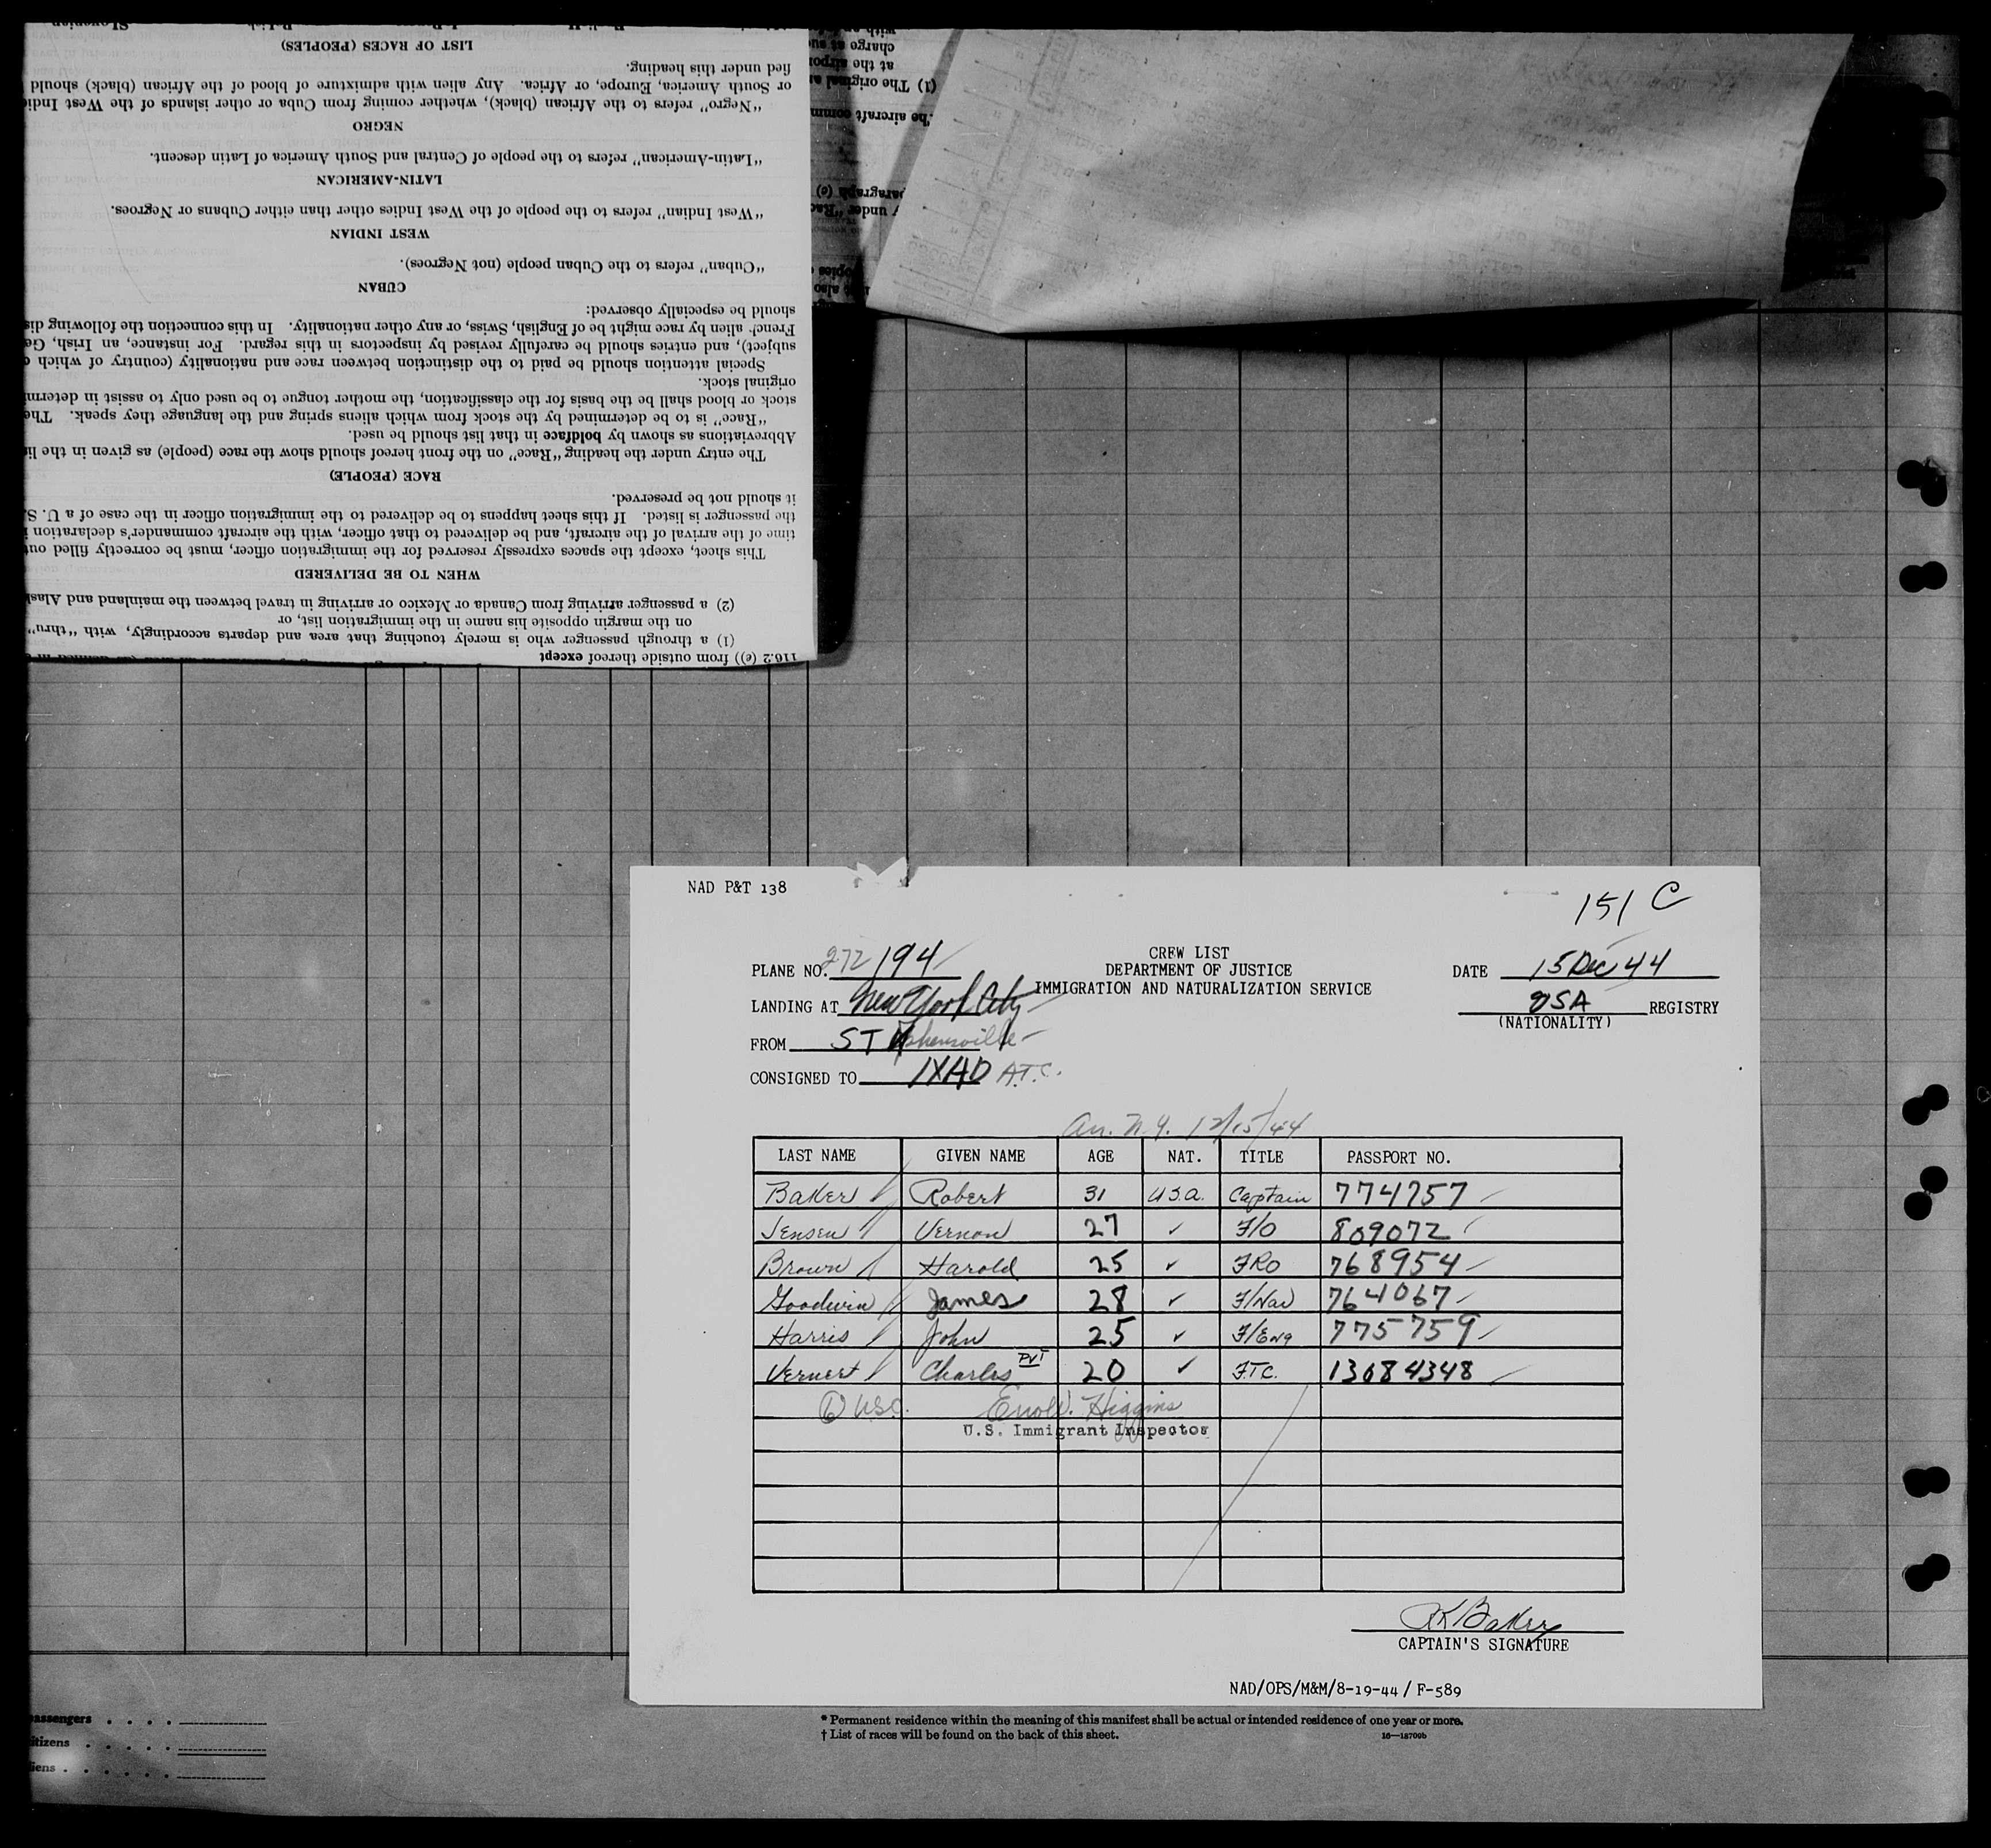 NAD P&T 138
151 C
CREW LIST
DEPARTMENT OF JUSTICE
IMMIGRATION AND NATURALIZATION SERVICE
PLANE NO. 272194
DATE 15 Dec 44
LANDING AT New York City
USA REGISTRY
(NATIONALITY)
FROM STephensville
CONSIGNED TO 1XAD A.T.C.
Arr. N.Y. 12/15/44
LAST NAME GIVEN NAME AGE NAT. TITLE PASSPORT NO.
Baker Robert 31 U.S.A. Captain 774757
Jensen Vernon 27 ✓ F/O 809072
Brown Harold 25 ✓ FRO 768954
Goodwin James 28 ✓ F/Nav 764067
Harris John 25 ✓ F/Eng 775759
Vernest Charles Pvt 20 ✓ F.T.C. 13084348
6 U.S.C. Enold. Higgins
U.S. Immigrant Inspector
RK Baker
CAPTAIN'S SIGNATURE
NAD/OPS/M&M/8-19-44 / F-589
* Permanent residence within the meaning of this manifest shall be actual or intended residence of one year or more.
† List of races will be found on the back of this sheet.
16—18700b
assengers
itizens
liens
116.2 (e)) from outside thereof except
(1) a through passenger who is merely touching that area and departs accordingly, with "thru"
on the margin opposite his name in the immigration list, or
(2) a passenger arriving from Canada or Mexico or arriving in travel between the mainland and Alask
WHEN TO BE DELIVERED
This sheet, except the spaces expressly reserved for the immigration officer, must be correctly filled out
time of the arrival of the aircraft, and be delivered to that officer, with the aircraft commander's declaration
the passenger is listed. If this sheet happens to be delivered to the immigration officer in the case of a U. S.
it should not be preserved.
RACE (PEOPLE)
The entry under the heading "Race" on the front hereof should show the race (people) as given in the li
Abbreviations as shown by boldface in that list should be used.
"Race" is to be determined by the stock from which aliens spring and the language they speak. The
stock or blood shall be the basis for the classification, the mother tongue to be used only to assist in determi
original stock.
Special attention should be paid to the distinction between race and nationality (country of which
subject), and entries should be carefully revised by inspectors in this regard. For instance, an Irish, Ge
French alien by race might be of English, Swiss, or any other nationality. In this connection the following dis
should be especially observed:
CUBAN
"Cuban" refers to the Cuban people (not Negroes).
WEST INDIAN
"West Indian" refers to the people of the West Indies other than either Cubans or Negroes.
LATIN-AMERICAN
"Latin-American" refers to the people of Central and South America of Latin descent.
NEGRO
"Negro" refers to the African (black), whether coming from Cuba or other islands of the West Indie
or South America, Europe, or Africa. Any alien with admixture of blood of the African (black) should
fied under this heading.
LIST OF RACES (PEOPLES)
y under "Rac
paragraph (c)
he aircraft comm
(1) The original an
at the airpor
charge at suc
with an